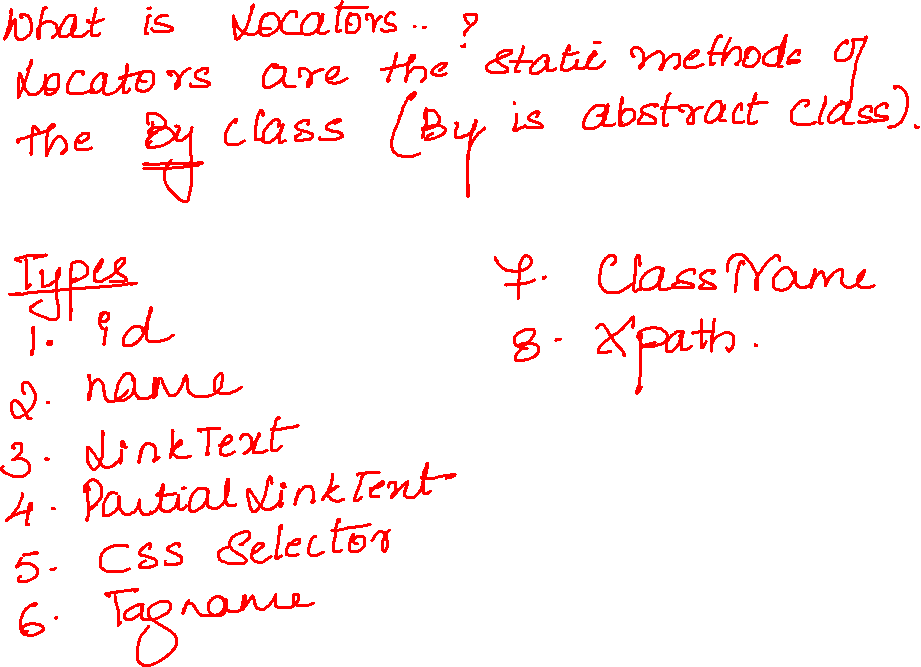 What is Locators.. ?
Locators are the static methods of
the By class (By is abstract class).
Types
1. id
2. name
3. LinkText
4. Partial LinkText
5. CSS Selector
6. Tagname
7. ClassName
8. Xpath.